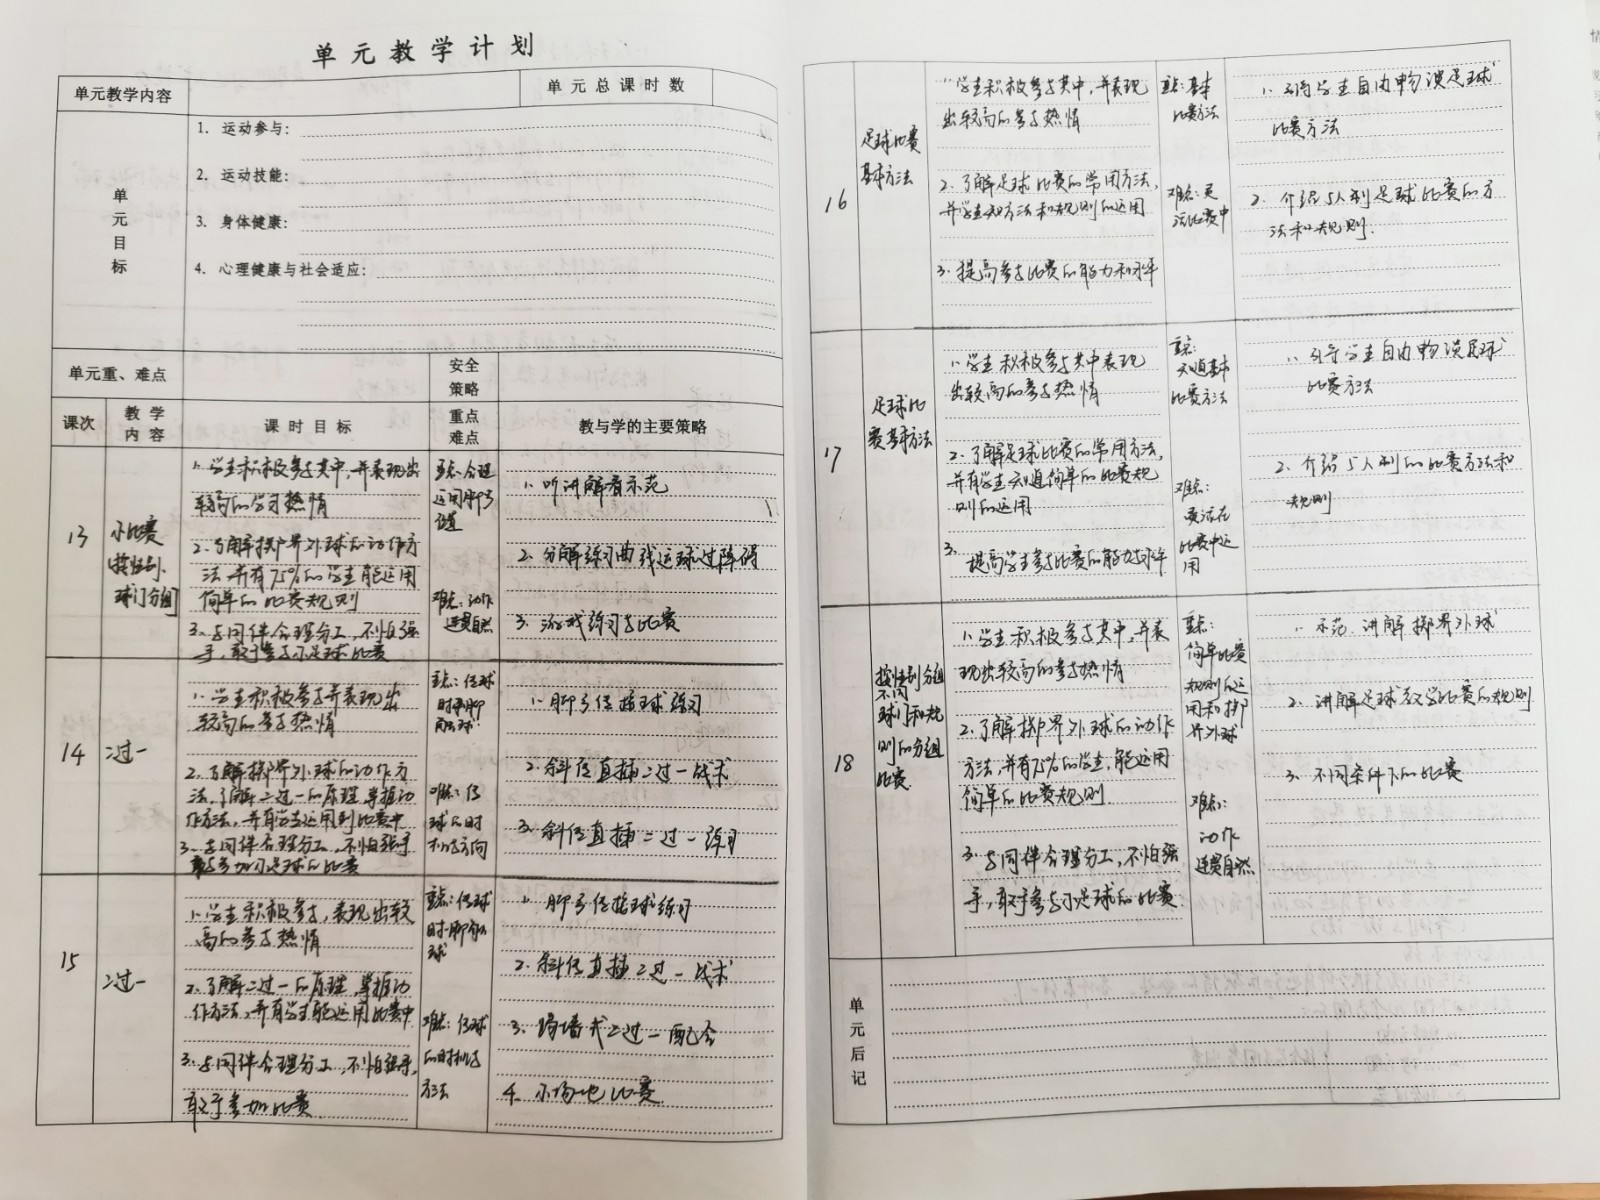 单元教学计划
单元教学内容
单元总课时数
单元目标
1. 运动参与：
2. 运动技能：
3. 身体健康：
4. 心理健康与社会适应：
单元重、难点
安全策略
课次
教学内容
课时目标
重点难点
教与学的主要策略
13
小比赛
按性别、
球门分组
1. 学生积极参与其中,并表现出
较高的学习热情
2. 了解掷界外球的动作方
法,并有75%的学生能运用
简单的比赛规则
3. 与同伴合理分工,不怕强
手,敢于参与小足球比赛
重点:合理
运用脚弓
难点:动作
连贯自然
1. 听讲解看示范
2. 分解练习曲线运球过障碍
3. 游戏练习与比赛
14
二过一
1. 学生积极参与并表现出
较高的参与热情
2. 了解掷界外球的动作方
法,了解二过一的原理,掌握动
作方法,并有学生运用到比赛中
3. 与同伴合理分工,不怕强手
参加小足球的比赛
重点:传球
时用脚
难点:传
球的时
机与方向
1. 脚弓传接球练习
2. 斜传直插二过一战术
3. 斜传直插二过一练习
15
二过一
1. 学生积极参与,表现出较
高的参与热情
2. 了解二过一的原理,掌握动
作方法,并有学生能运用比赛中
3. 与同伴合理分工,不怕强手,
敢于参加比赛
重点:传球
时脚
球
难点:传球
的时机与
方法
1. 脚弓传接球练习
2. 斜传直插二过一战术
3. 踢墙式二过一配合
4. 小场地比赛
16
足球比赛
基本方法
1. 学生积极参与其中,并表现
出较高的参与热情
2. 了解足球比赛的常用方法,
并学生知方法和规则的运用
3. 提高参与比赛的能力和水平
重点:基本
比赛方法
难点:灵
活比赛中
1. 引导学生自由畅谈足球
比赛方法
2. 介绍5人制足球比赛的方
法和规则.
17
足球比
赛基本方法
1. 学生积极参与其中表现
出较高的参与热情
2. 了解足球比赛的常用方法,
并有学生知道简单的比赛规
则的运用
3. 提高学生参与比赛的能力与水平
重点:
知道基本
比赛方法
难点:
灵活在
比赛中运
用
1. 引导学生自由畅谈足球
比赛方法
2. 介绍5人制的比赛方法和
规则
18
按性别分组
不同
球门和规
则的分组
比赛
1. 学生积极参与其中,并表
现出较高的参与热情
2. 了解掷界外球的动作
方法,并有75%的学生,能运用
简单的比赛规则
3. 与同伴合理分工,不怕强
手,敢于参与小足球的比赛
重点:
简单比赛
规则的运
用和掷
界外球
难点:
动作
连贯自然
1. 示范、讲解掷界外球
2. 讲解足球教学比赛的规则
3. 不同条件下的比赛
单元后记